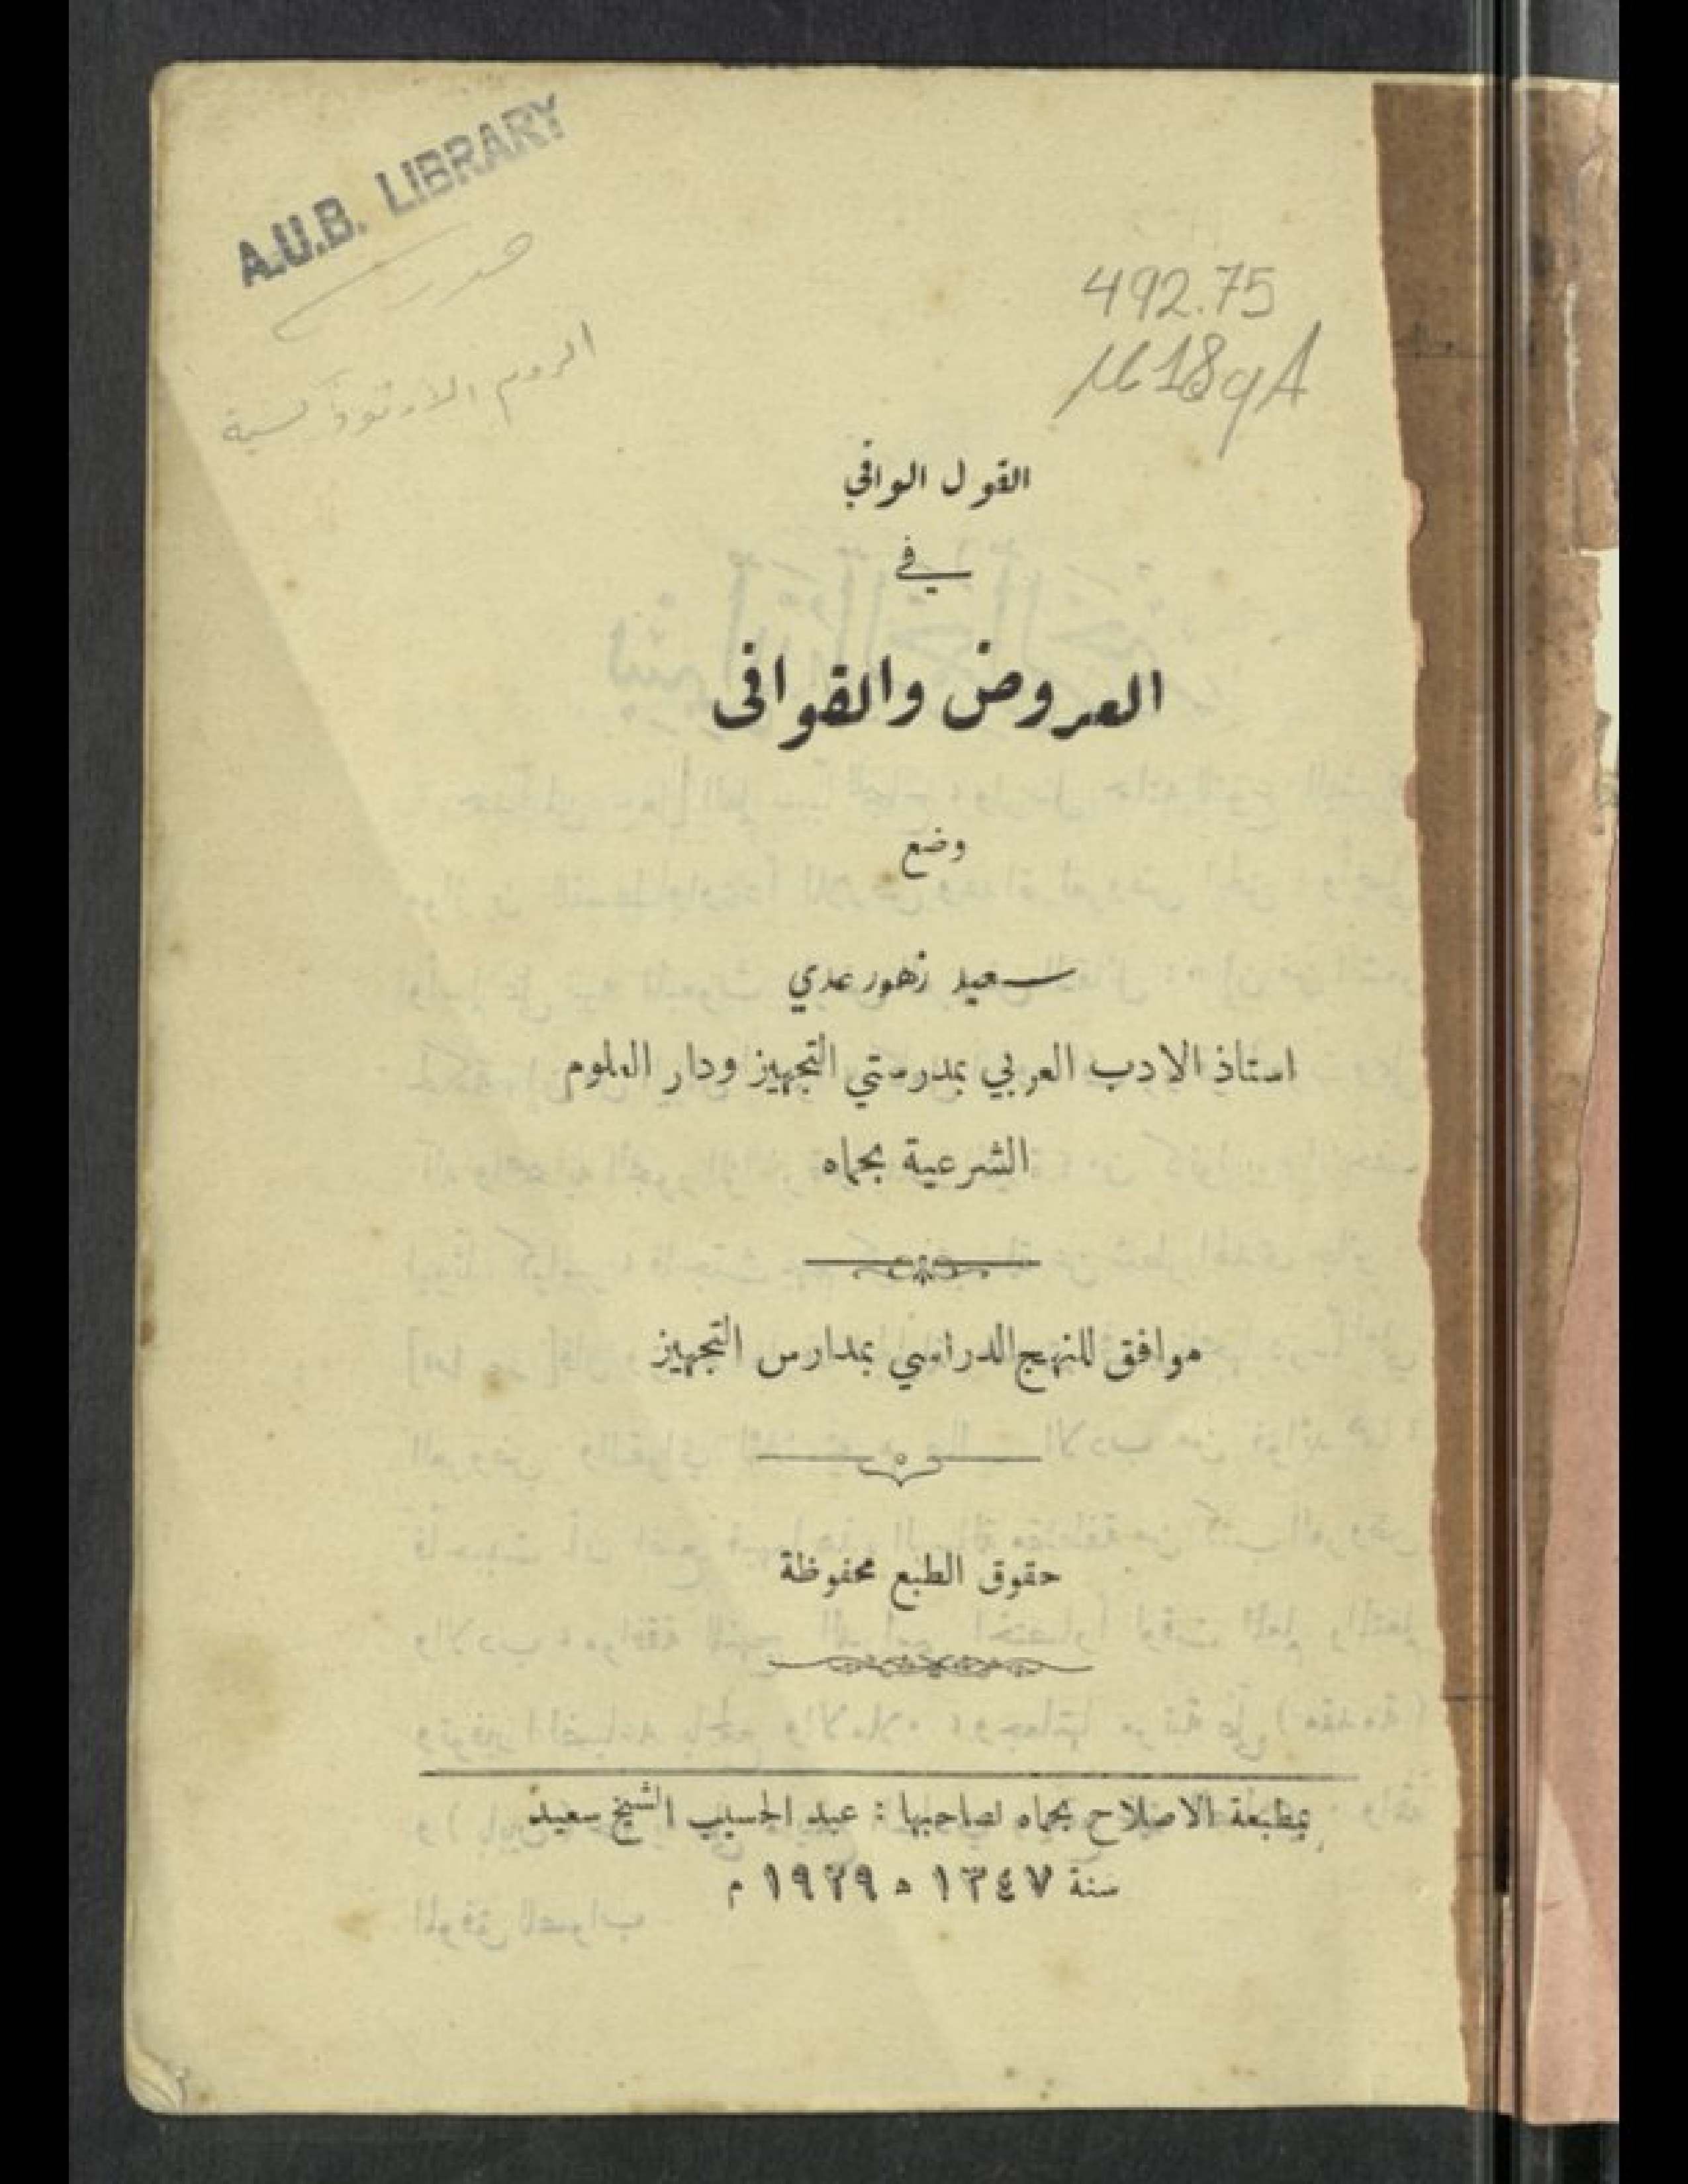 A.U.B. LIBRARY
492.75
الروم الارثوذكسية
القول الوافي
في
العروض والقوافى
وضع
سعيد زهور عدي
استاذ الادب العربي بمدرستي التجهيز ودار العلوم
الشرعية بحماه
موافق للمنهج الدراسي بمدارس التجهيز
حقوق الطبع محفوظة
بمطبعة الاصلاح بحماه لصاحبها : عبد الحسيب الشيخ سعيد
سنة ١٣٤٧ ه ١٩٢٩ م